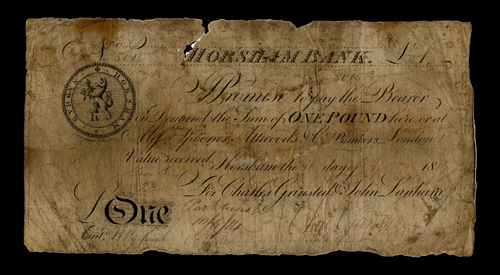 No
HORSHAM BANK. £1.
5015
I Promise to pay the Bearer
on Demand the Sum of ONE POUND here or at
Mess.rs Spooner, Attwoods & Co. Bankers London
Value received.
Horsham the day of 18
For Charles Grinsted & John Lanham
£ One
Ent.d